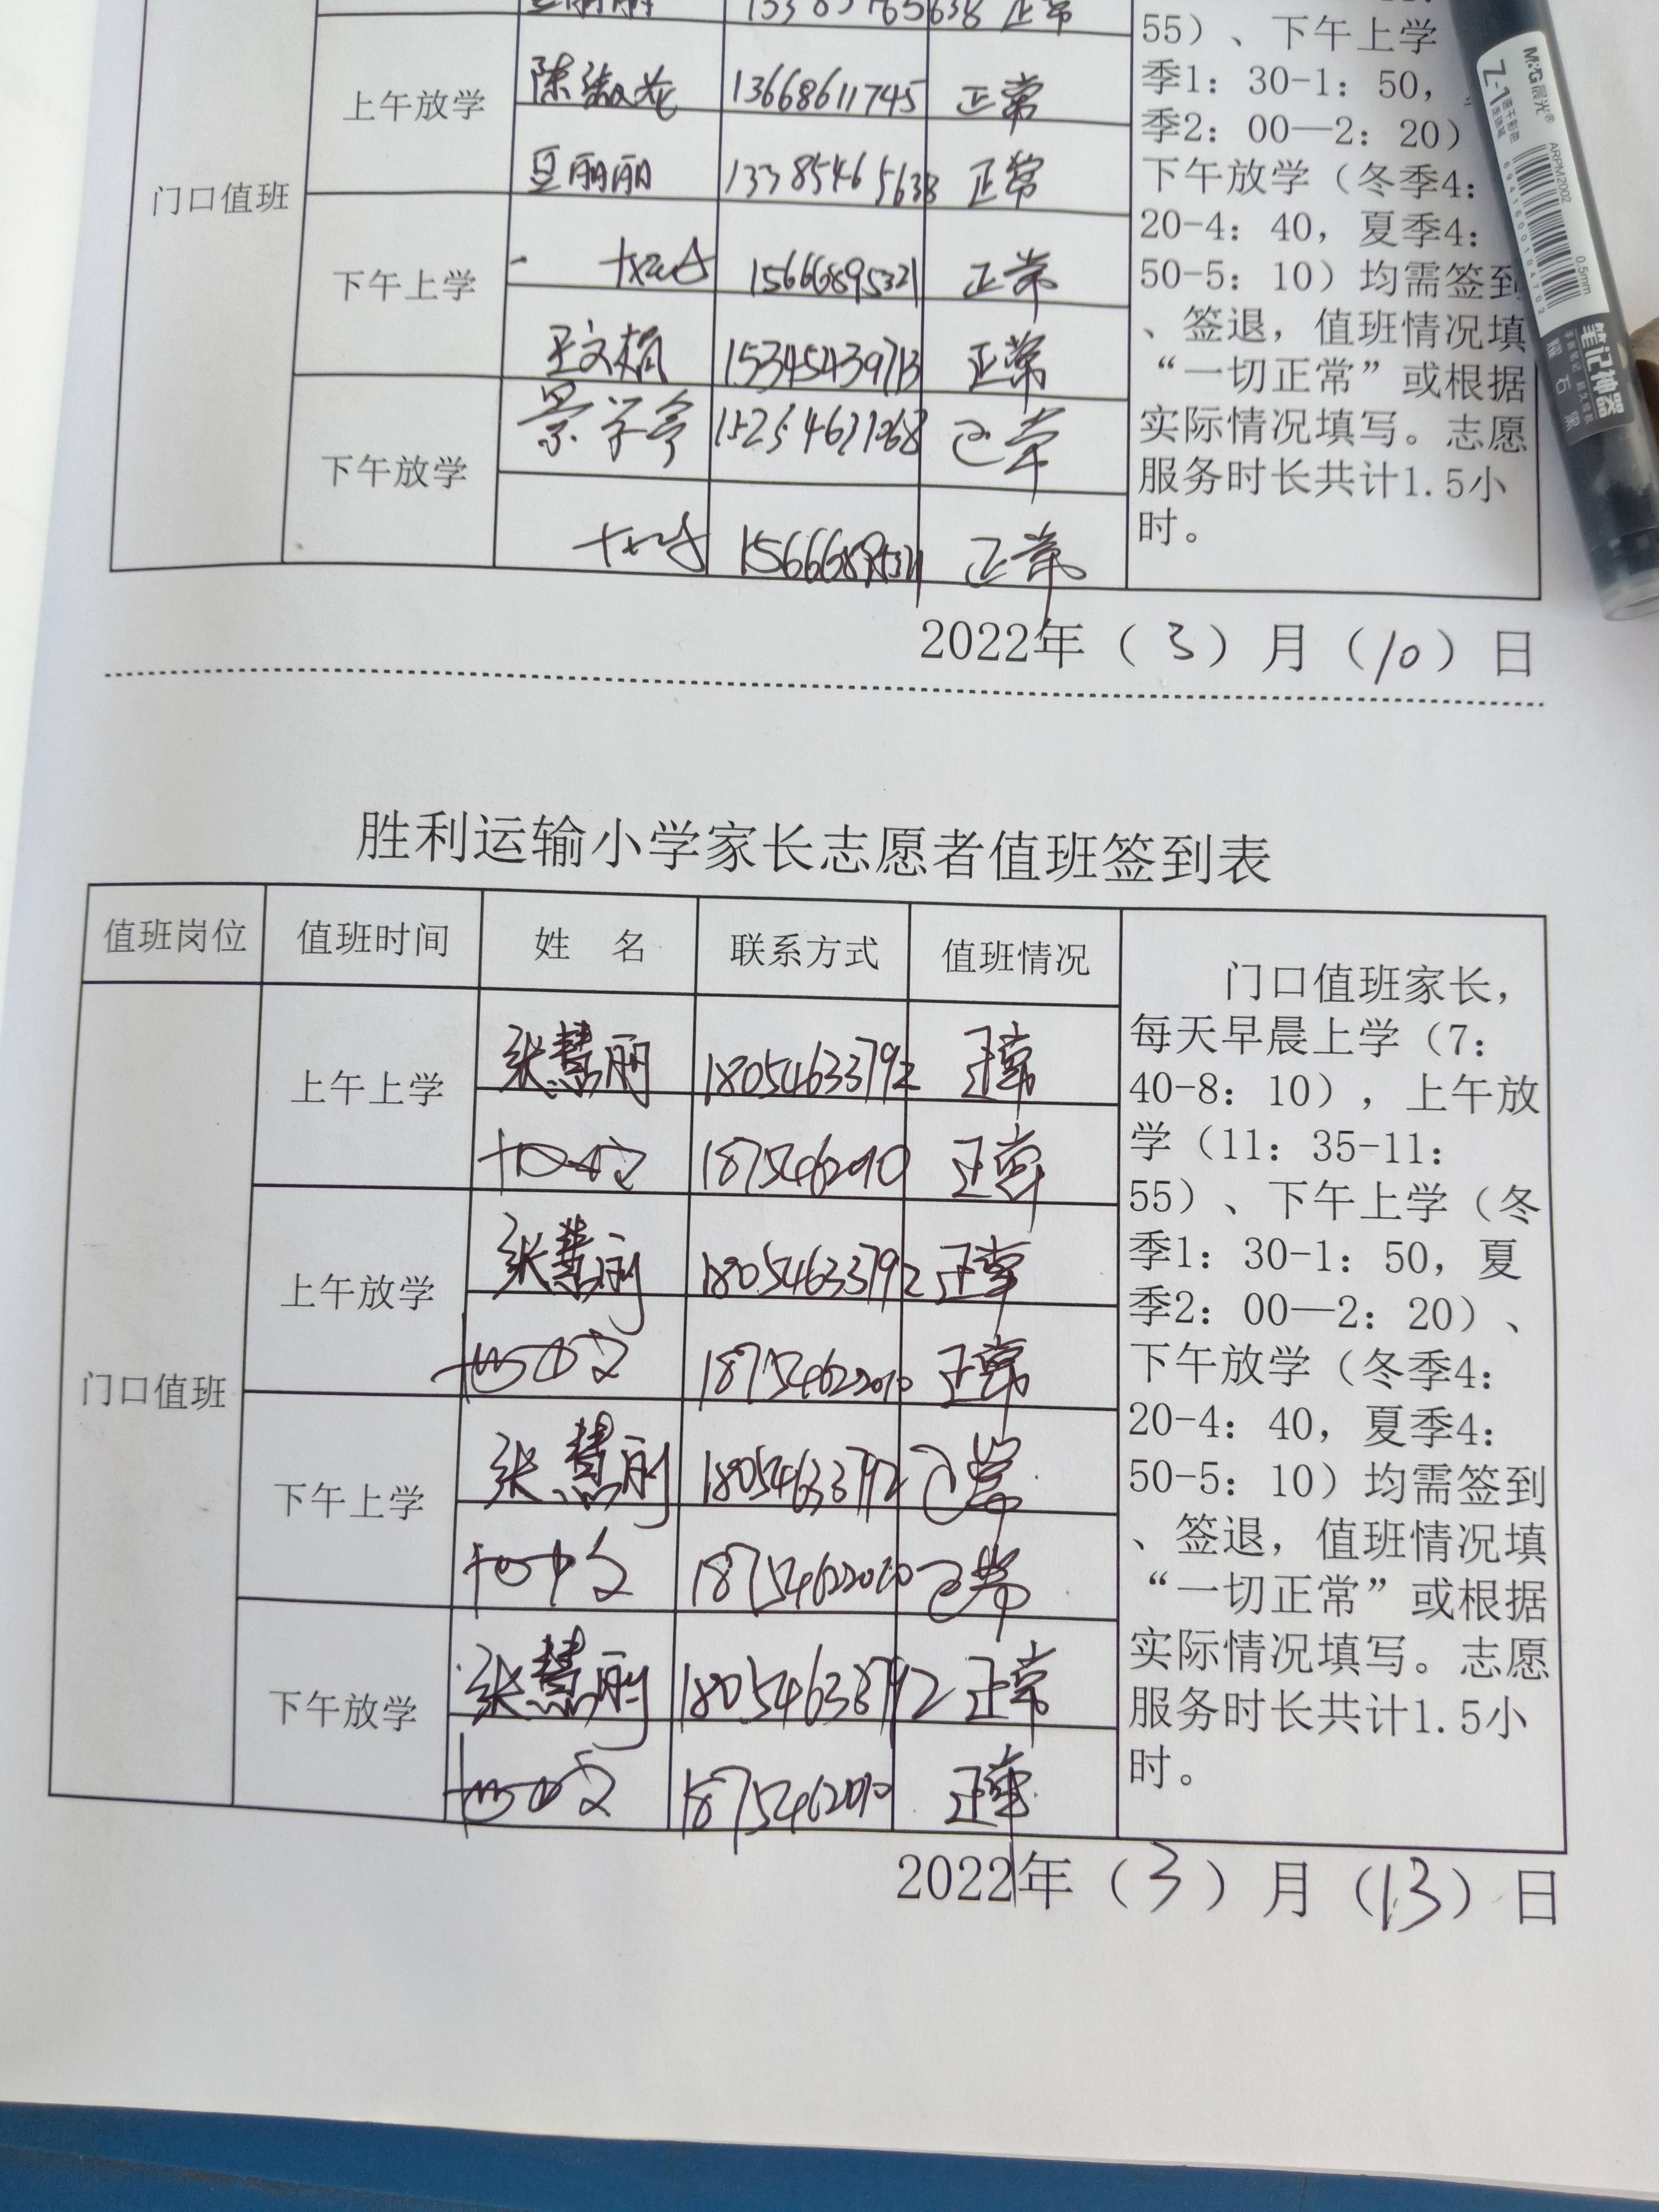 正常
55）、下午上学
上午放学 13668611745 正常
季1：30-1：50，
季2：00—2：20）
豆丽丽 13385465638 正常
下午放学（冬季4：
门口值班
20-4：40，夏季4：
下午上学 15666895321 正常
50-5：10）均需签到
、签退，值班情况填
王文娟 15345439713 正常
“一切正常”或根据
景学亭 正常
实际情况填写。志愿
下午放学
服务时长共计1.5小
15666895321 正常
时。
2022年（3）月（10）日
M&G晨光
ARPM2002
0.5mm
笔记神器
胜利运输小学家长志愿者值班签到表
值班岗位 值班时间 姓 名 联系方式 值班情况
门口值班家长，
每天早晨上学（7：
上午上学 张慧丽 18054633792 正常
40-8：10），上午放
正常
学（11：35-11：
55）、下午上学（冬
上午放学 张慧丽 18054633792 正常
季1：30-1：50，夏
季2：00—2：20）、
18754622010 正常
下午放学（冬季4：
门口值班
20-4：40，夏季4：
下午上学 张慧丽 18054633792 正常
50-5：10）均需签到
、签退，值班情况填
18754622010 正常
“一切正常”或根据
实际情况填写。志愿
下午放学 张慧丽 18054633792 正常
服务时长共计1.5小
时。
正常
2022年（3）月（13）日